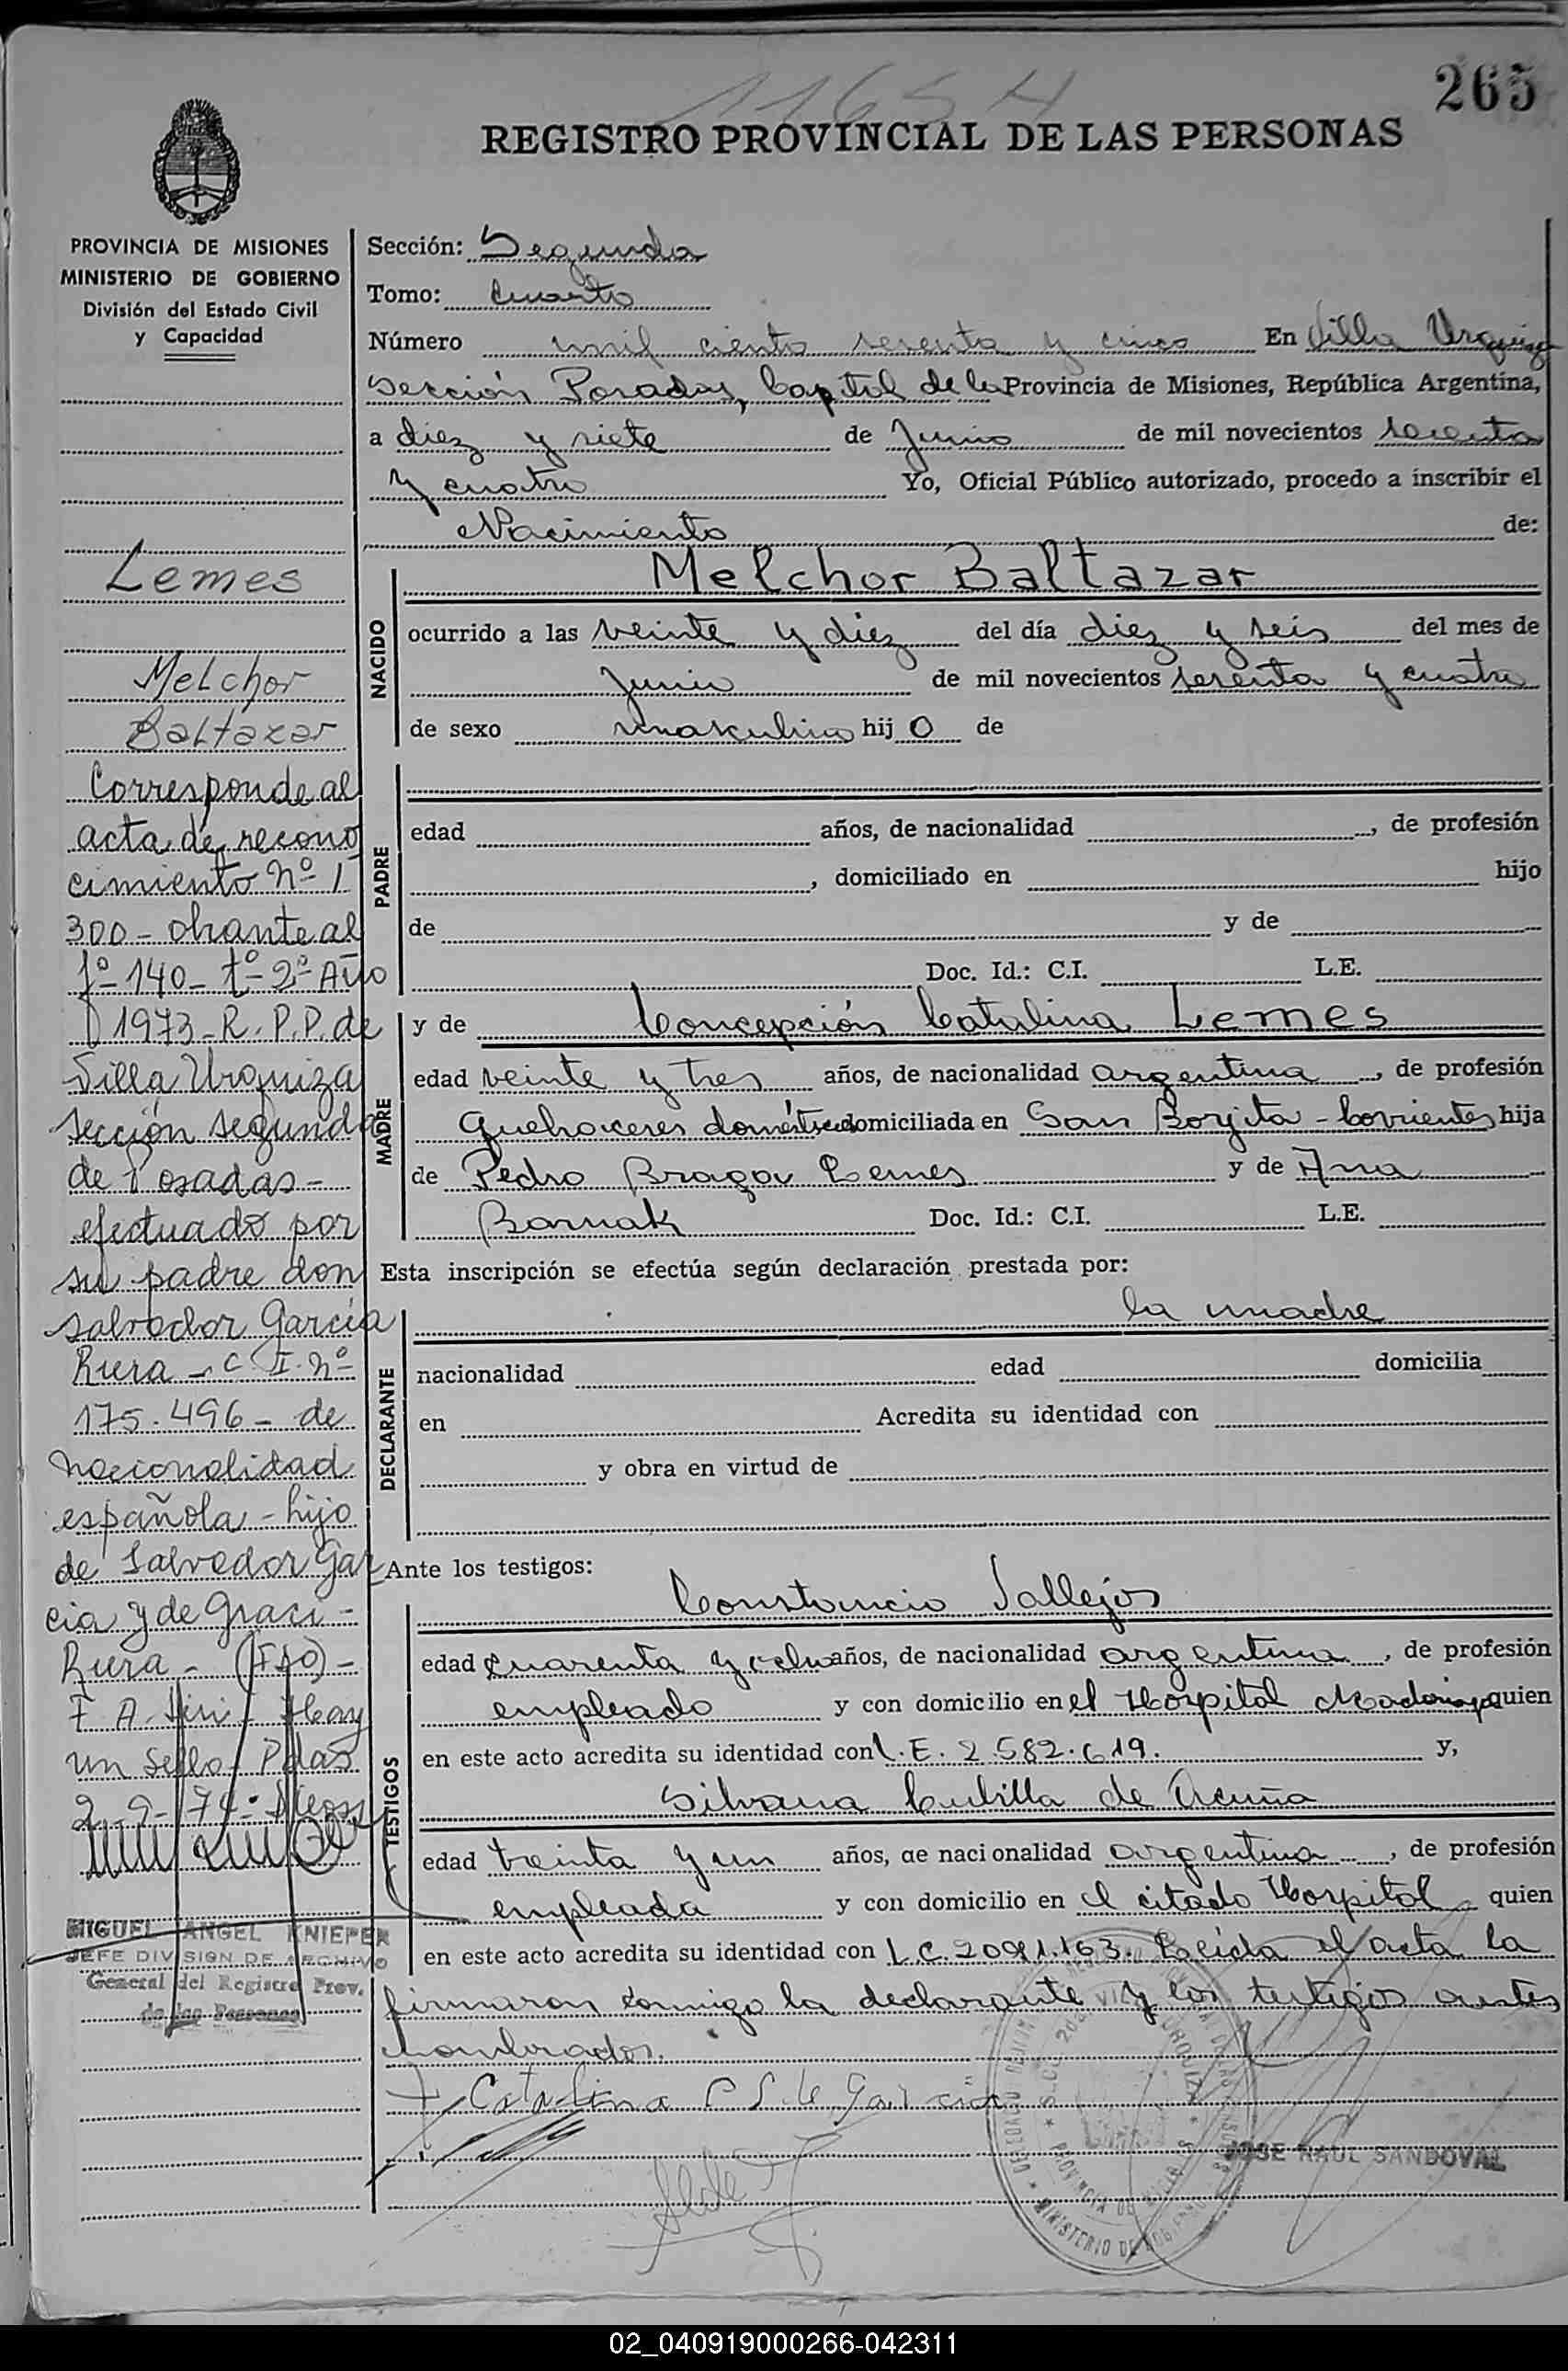 265
11654
REGISTRO PROVINCIAL DE LAS PERSONAS
PROVINCIA DE MISIONES
MINISTERIO DE GOBIERNO
División del Estado Civil
y Capacidad
Lemes
Melchor
Baltazar
Corresponde al
acta de recono
cimiento nº 1
300 - obrante al
fº 140 - tº 2º Año
1973 - R. P. P. de
Villa Urquiza
sección segunda
de Posadas -
efectuado por
su padre don
Salvador García
Riera - C. I. nº
175.496 - de
nacionalidad
española - hijo
de Salvador Gar
cia y de Graci -
Riera - (FAO) -
F. A. - Hay
un sello - Pdas
2-9-74
MIGUEL ANGEL KNIEPER
JEFE DIVISION DE ARCHIVO
General del Registro Prov.
de las Personas
Sección: Segunda
Tomo: Cuarto
Número mil ciento sesenta y cinco En Villa Urquiza
Sección Posadas, Capital de la Provincia de Misiones, República Argentina,
a diez y siete de Junio de mil novecientos sesenta
y cuatro Yo, Oficial Público autorizado, procedo a inscribir el
Nacimiento de:
NACIDO
Melchor Baltazar
ocurrido a las veinte y diez del día diez y seis del mes de
Junio de mil novecientos sesenta y cuatro
de sexo masculino hij o de
PADRE
edad años, de nacionalidad , de profesión
, domiciliado en hijo
de y de
Doc. Id.: C.I. L.E.
MADRE
y de Concepción Catalina Lemes
edad veinte y tres años, de nacionalidad argentina, de profesión
quehaceres domésticos domiciliada en San Borjita - Corrientes hija
de Pedro Braga Lemes y de Ana
Barnak Doc. Id.: C.I. L.E.
Esta inscripción se efectúa según declaración prestada por:
DECLARANTE
la madre
nacionalidad edad domicilia
en Acredita su identidad con
y obra en virtud de
Ante los testigos:
TESTIGOS
Constancio Vallejos
edad cuarenta y ocho años, de nacionalidad argentina, de profesión
empleado y con domicilio en el Hospital Madariaga quien
en este acto acredita su identidad con L.E. 2.582.619. y,
Silvana Cubilla de Acuña
edad treinta y un años, de nacionalidad argentina, de profesión
empleada y con domicilio en el citado Hospital quien
en este acto acredita su identidad con L.C. 2091.163. Leída el acta la
firmaron conmigo la declarante y los testigos antes
nombrados.
Catalina de García
JOSE RAUL SANDOVAL
02_040919000266-042311